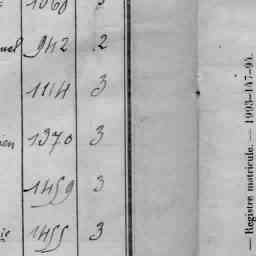 1060 3
942 2
1114 3
1370 3
1459 3
1455 3
— Registre matricule. — 1993-147-94.